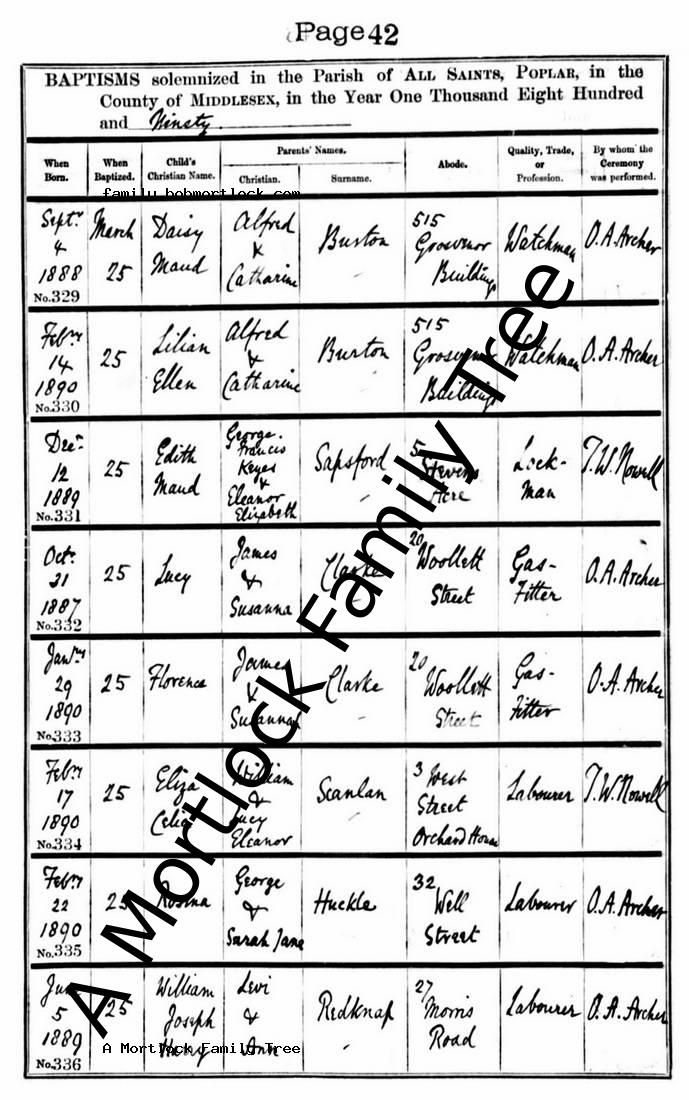 Page 42
BAPTISMS solemnized in the Parish of ALL SAINTS, POPLAR, in the
County of MIDDLESEX, in the Year One Thousand Eight Hundred
and Ninety.
When Born. When Baptized. Child's Christian Name. Parents' Names. Christian. Surname. Abode. Quality, Trade, or Profession. By whom the Ceremony was performed.
family.bobmortlock.com
Septr 4 1888 March 25 Daisy Maud Alfred & Catharine Burton 515 Grosvenor Buildings Watchman O. A. Archer
No.329
Febry 14 1890 25 Lilian Ellen Alfred & Catharine Burton 515 Grosvenor Buildings Watchman O. A. Archer
No.330
Decr 12 1889 25 Edith Maud George. Francis Keyes & Eleanor Elizabeth Sapsford 5 Stevens Lock-Man T. W. Nowell
No.331
Octr 31 1887 25 Lucy James & Susanna Clarke 20 Woollett Street Gas-Fitter O. A. Archer
No.332
Janry 29 1890 25 Florence James & Susannah Clarke 20 Woollett Street Gas-Fitter O. A. Archer
No.333
Febry 17 1890 25 Eliza Celia William & Lucy Eleanor Scanlan 3 West Street Orchard House Labourer T. W. Nowell
No.334
Febry 22 1890 25 Rosina George & Sarah Jane Huckle 32 Well Street Labourer O. A. Archer
No.335
5 1889 25 William Joseph Henry Levi & Ann Redknap 27 Morris Road Labourer O. A. Archer
No.336
A Mortlock Family Tree
A Mortlock Family Tree